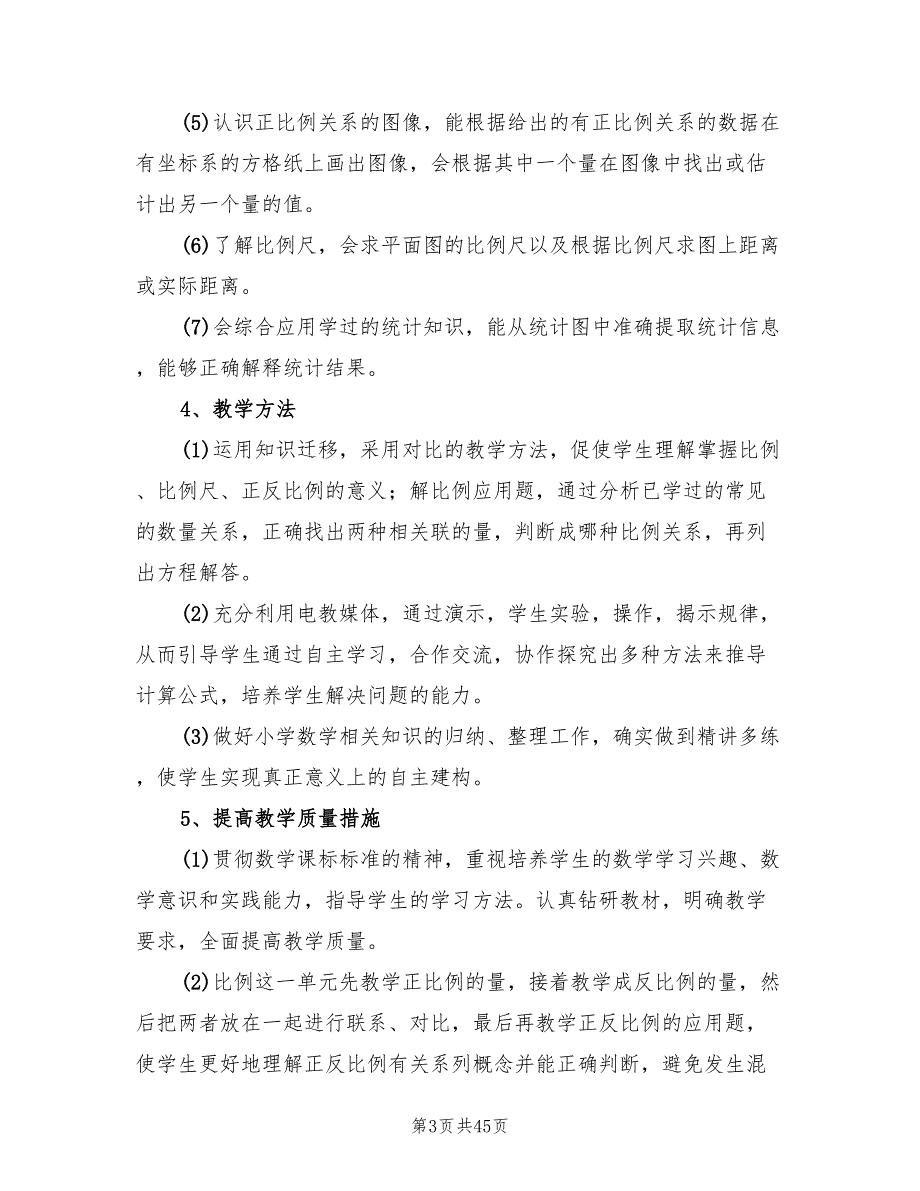 (5)认识正比例关系的图像，能根据给出的有正比例关系的数据在
有坐标系的方格纸上画出图像，会根据其中一个量在图像中找出或估
计出另一个量的值。
(6)了解比例尺，会求平面图的比例尺以及根据比例尺求图上距离
或实际距离。
(7)会综合应用学过的统计知识，能从统计图中准确提取统计信息
，能够正确解释统计结果。
4、教学方法
(1)运用知识迁移，采用对比的教学方法，促使学生理解掌握比例
、比例尺、正反比例的意义；解比例应用题，通过分析已学过的常见
的数量关系，正确找出两种相关联的量，判断成哪种比例关系，再列
出方程解答。
(2)充分利用电教媒体，通过演示，学生实验，操作，揭示规律，
从而引导学生通过自主学习，合作交流，协作探究出多种方法来推导
计算公式，培养学生解决问题的能力。
(3)做好小学数学相关知识的归纳、整理工作，确实做到精讲多练
，使学生实现真正意义上的自主建构。
5、提高教学质量措施
(1)贯彻数学课标标准的精神，重视培养学生的数学学习兴趣、数
学意识和实践能力，指导学生的学习方法。认真钻研教材，明确教学
要求，全面提高教学质量。
(2)比例这一单元先教学正比例的量，接着教学成反比例的量，然
后把两者放在一起进行联系、对比，最后再教学正反比例的应用题，
使学生更好地理解正反比例有关系列概念并能正确判断，避免发生混
第3页共45页